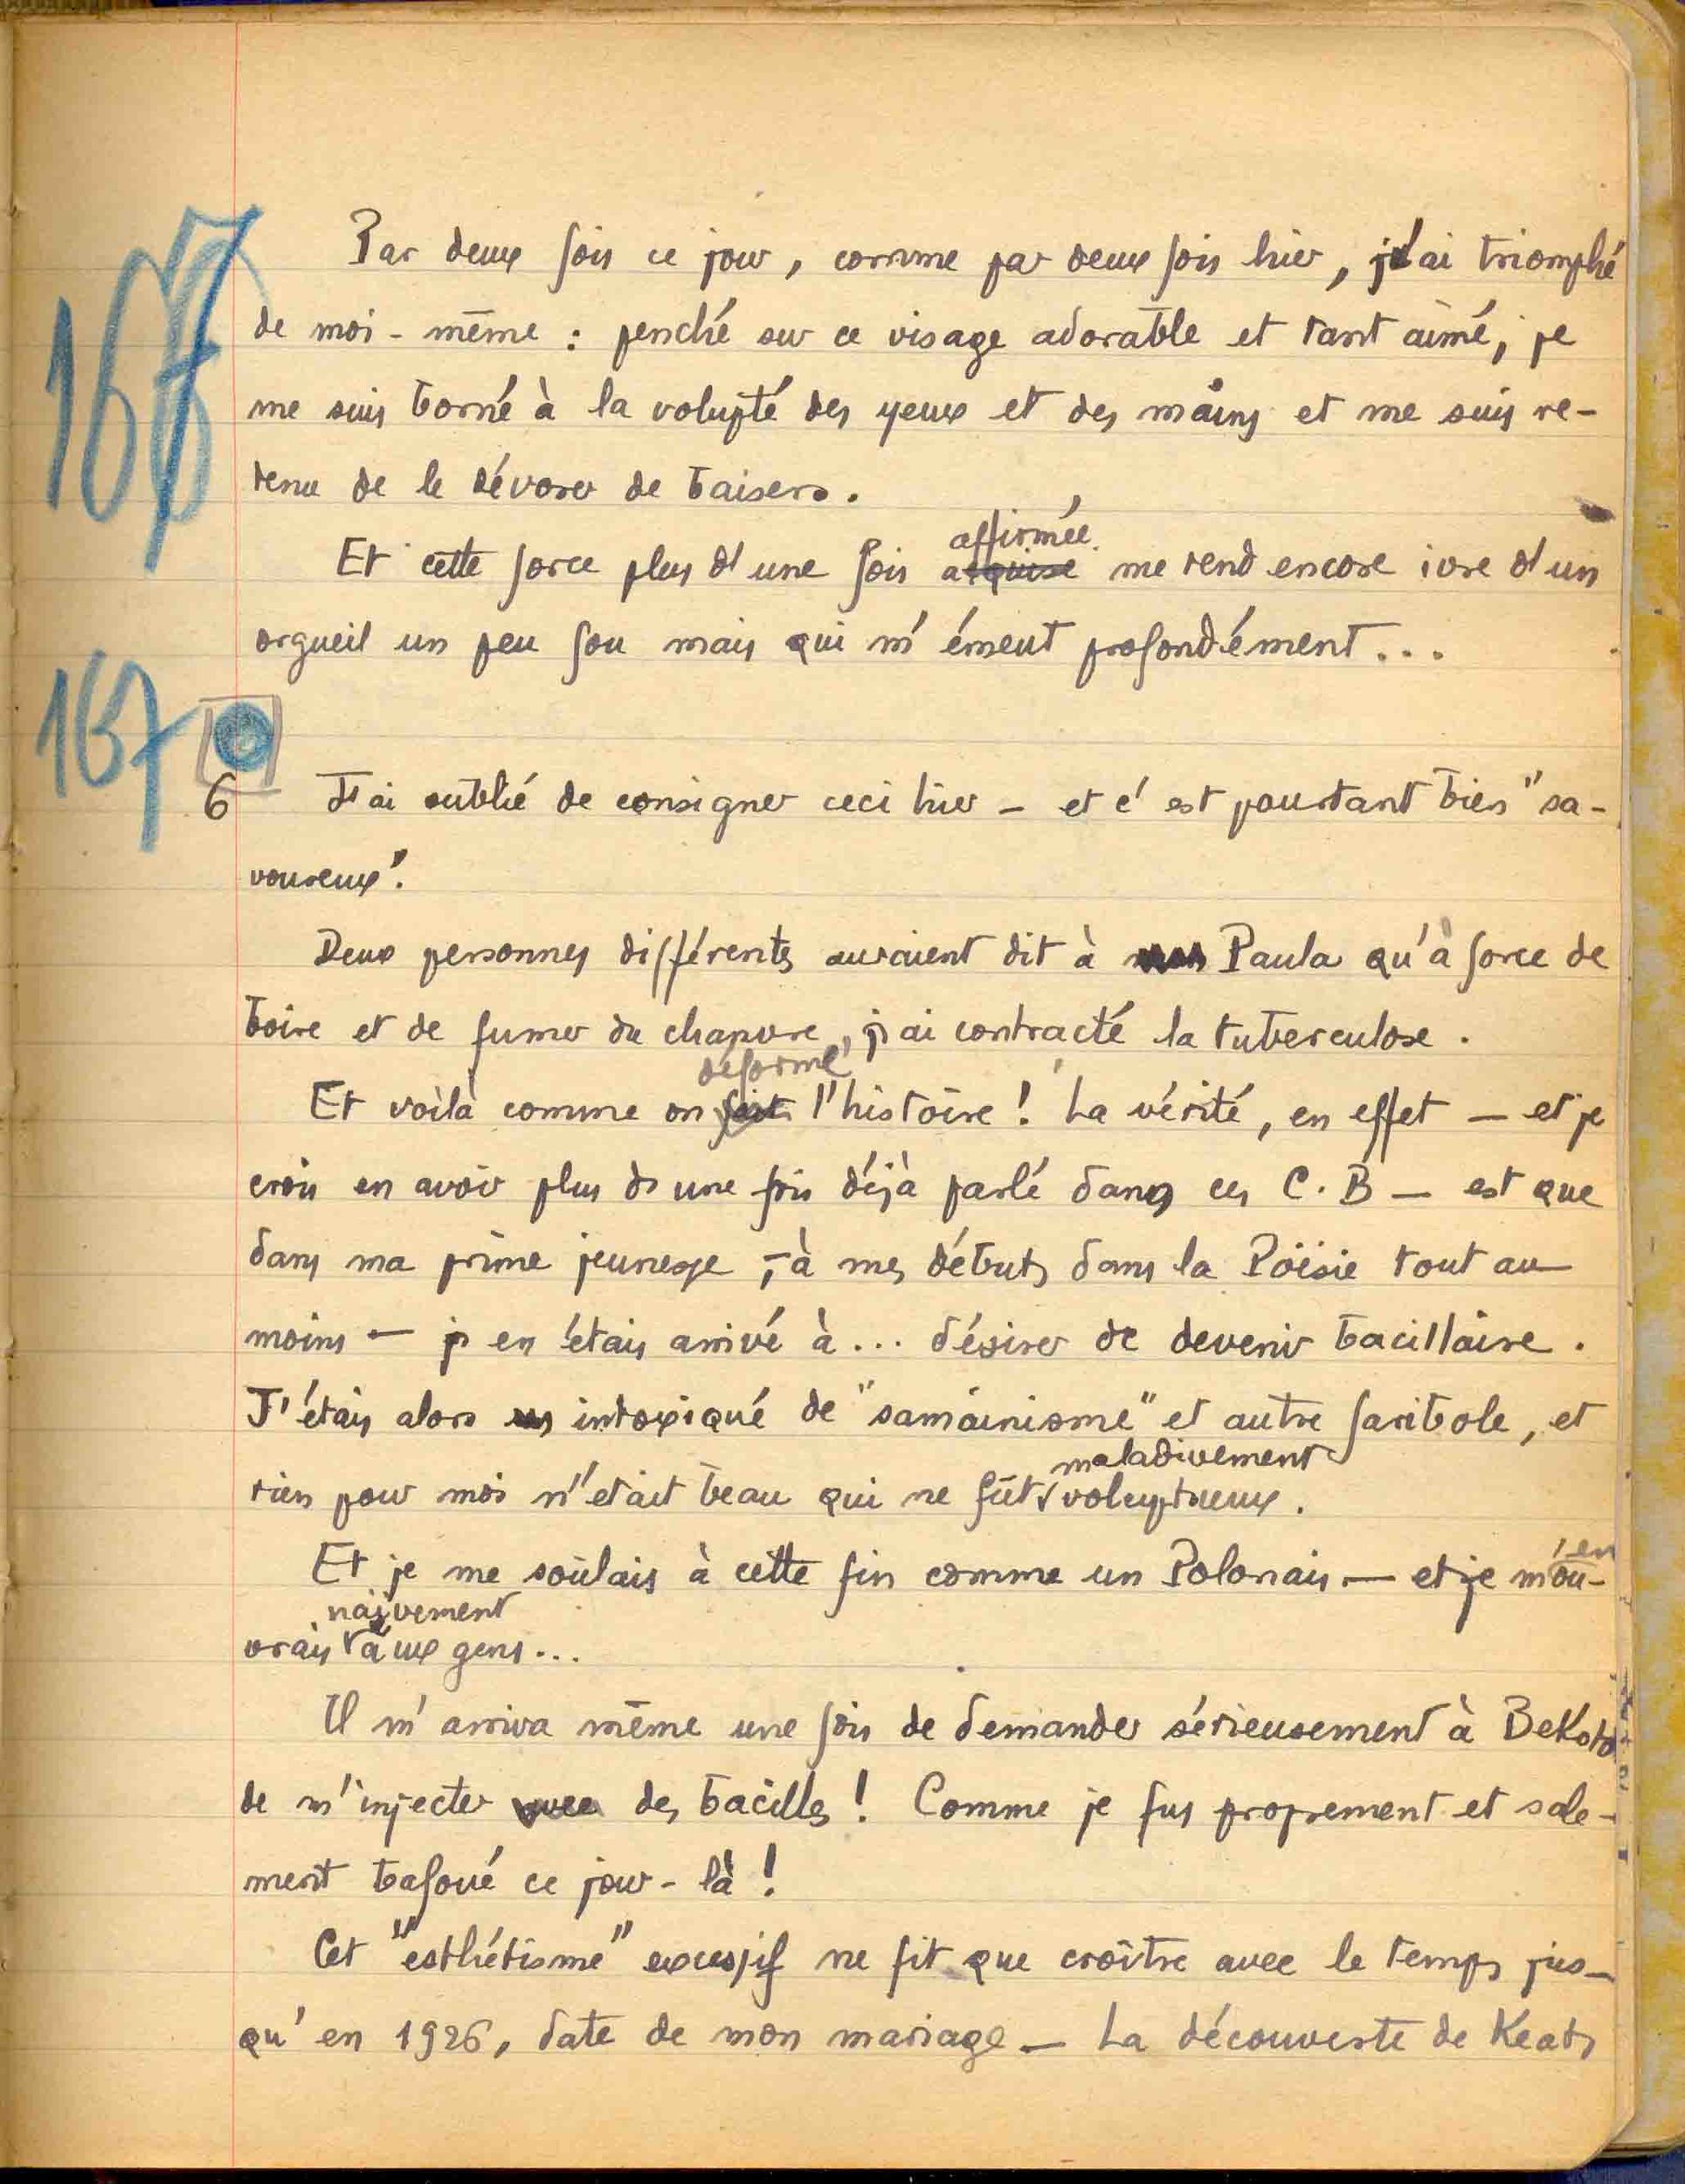 167
Par deux fois ce jour, comme par deux fois hier, j'ai triomphé
de moi-même : penché sur ce visage adorable et tant aimé, je
me suis borné à la volupté des yeux et des mains et me suis re-
tenu de le dévorer de baisers.
affirmée
Et cette force plus d'une fois acquise me rend encore ivre d'un
orgueil un peu fou mais qui m'émeut profondément...
167
6 J'ai oublié de consigner ceci hier — et c'est pourtant bien "sa-
voureux".
Deux personnes différentes auraient dit à Paula qu'à force de
boire et de fumer du chanvre, j'ai contracté la tuberculose.
déforme
Et voilà comme on fait l'histoire ! La vérité, en effet — et je
crois en avoir plus d'une fois déjà parlé dans ces C.B — est que
dans ma prime jeunesse, — à mes débuts dans la Poésie tout au
moins — j'en étais arrivé à... désirer de devenir bacillaire.
J'étais alors intoxiqué de "samainisme" et autre faribole, et
maladivement
rien pour moi n'etait beau qui ne fût voluptueux.
'en
Et je me soûlais à cette fin comme un Polonais — et je m'ou-
naïvement
vrais aux gens...
Il m'arriva même une fois de demander sérieusement à Bekoto
de m'injecter avec des bacilles ! Comme je fus proprement et sale-
ment bafoué ce jour-là !
Cet "esthétisme" excessif ne fit que croître avec le temps jus-
qu'en 1926, date de mon mariage — La découverte de Keats